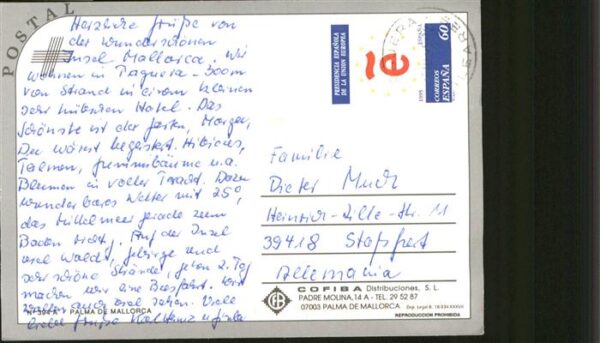 POSTAL
Herzliche Grüße von
der wunderschönen
Insel Mallorca. Wir
wohnen in Paguera - 300m
vom Strand in einem kleinen
sehr hübschen Hotel. Das
Schönste ist der Garten,
Du wärst begeistert. Hibiscus,
Palmen, Gummibäume u.a.
Blumen in voller Pracht. Dazu
wunderbares Wetter mit 25°,
das Mittelmeer gerade zum
Baden recht. Auf der Insel
viel Wald, Gebirge und
sehr schöne Strände, jeden 2. Tag
machen wir eine Busfahrt. Wir
wollen auch viel sehen. Viele
liebe Grüße
PALMA DE MALLORCA
PRESIDENCIA ESPAÑOLA
DE LA UNION EUROPEA
e
1995
CORREOS
ESPAÑA
60
Familie
Dieter
Heinrich-Zille-Str. 11
39418 Staßfurt
Allemania
COFIBA Distribuciones, S. L.
PADRE MOLINA, 14 A - TEL. 29 52 87
07003 PALMA DE MALLORCA
REPRODUCCION PROHIBIDA